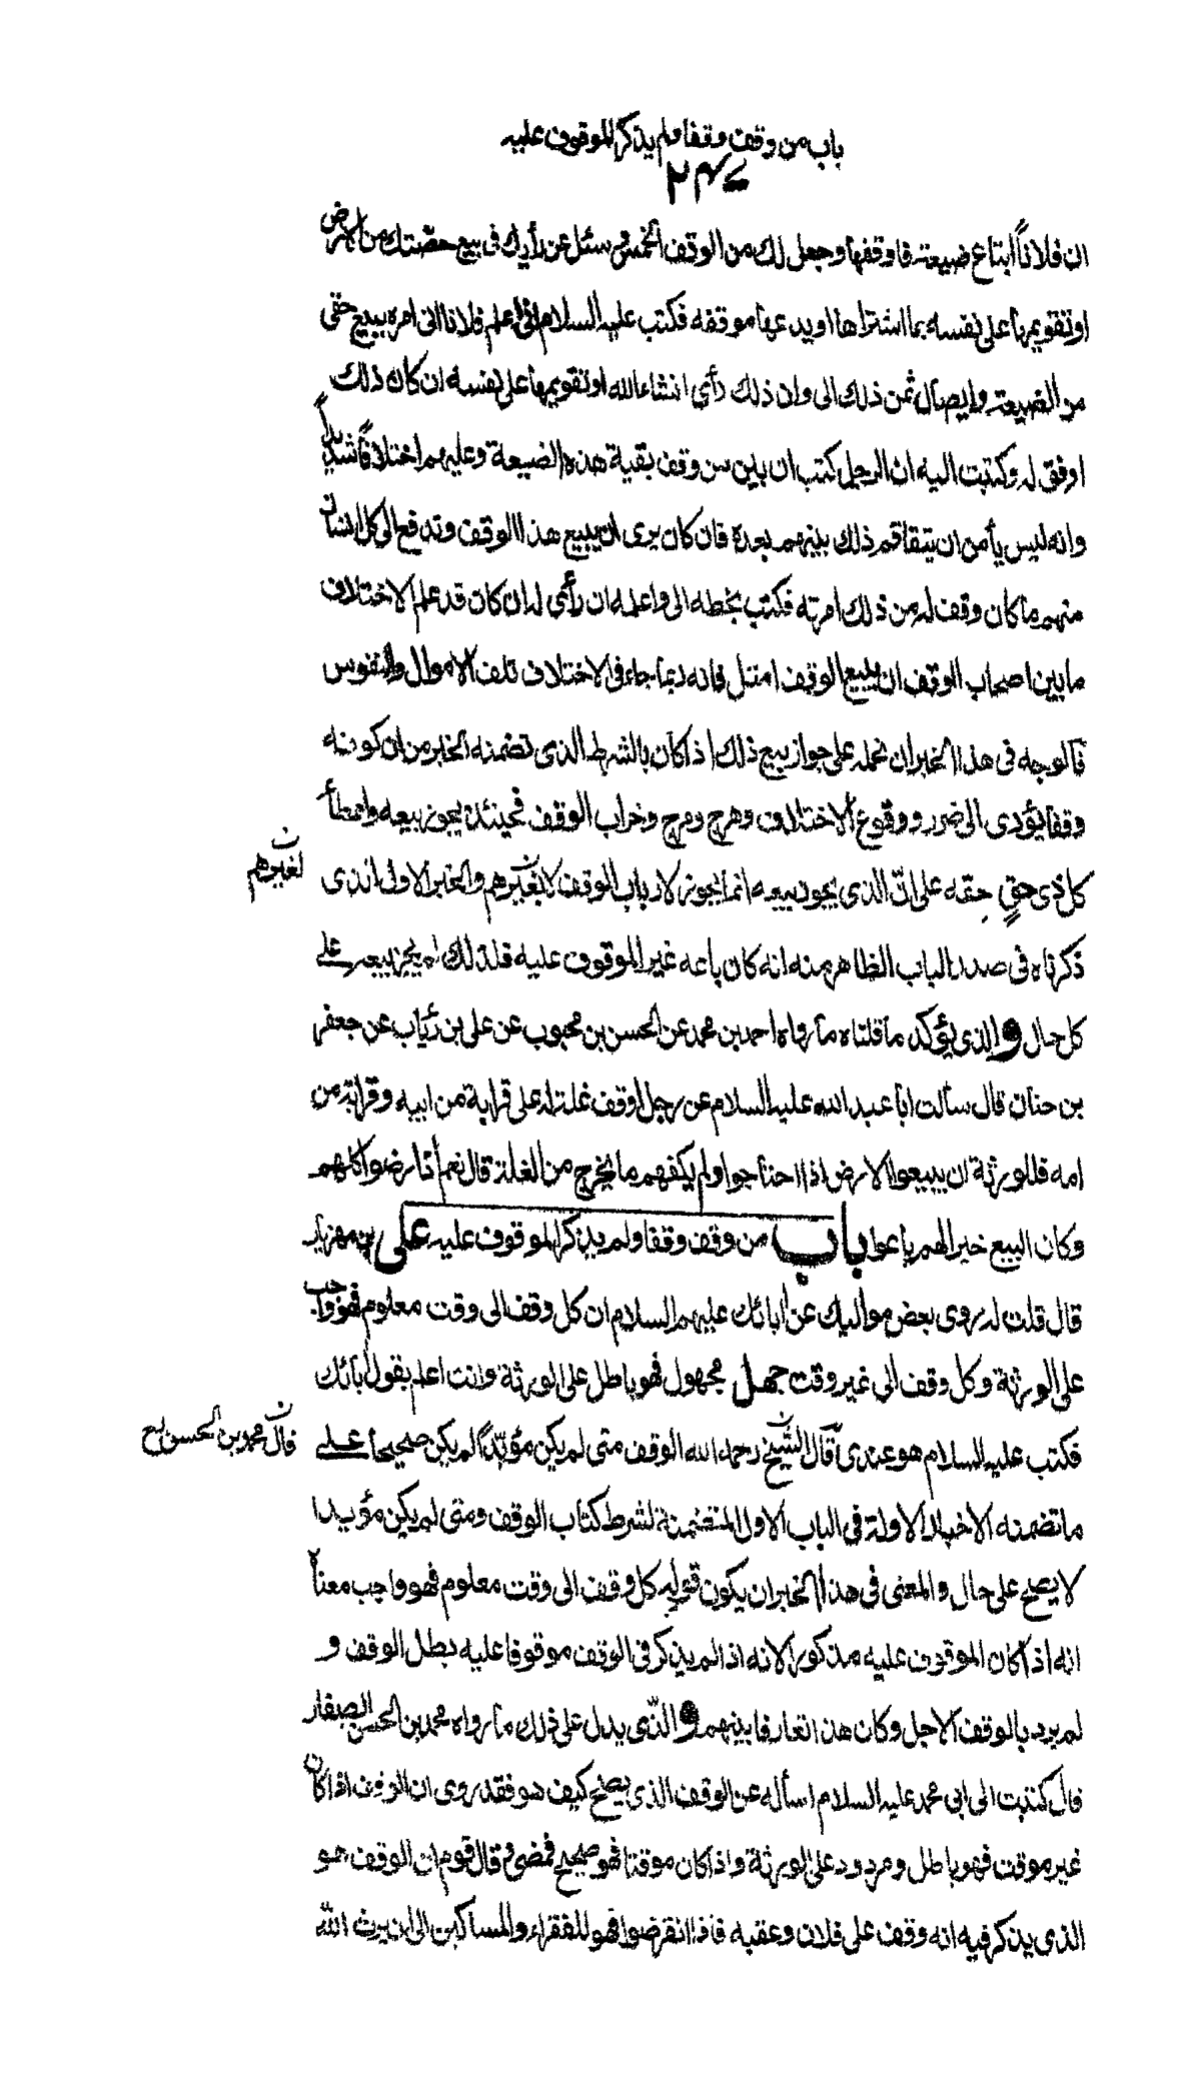 باب من وقف وقفا ولم يذكر الموقوف عليه
٢٤٧
ان فلاناً ابتاع ضيعة فاوقفها وجعل لك من الوقف الخمس و سئل عن رأيك فى بيع حصّتك من الارض
او تقويمها على نفسه بما اشتراها او يدعها موقفه فكتب عليه السلام الى اعلم فلانا انى امره ببيع حقى
من الضيعة وايصال ثمن ذلك الى وان ذلك رأي انشاء الله او تقويمها على نفسه ان كان ذلك
اوفق له وكتبت اليه ان الرجل كتب ان بين من وقف بقية هذه الضيعة وعليهم اختلافاً شديداً
وانه ليس يأمن ان يتفاقم ذلك بينهم بعده فان كان يرى ان يبيع هذا الوقف وتدفع الى كل انسان
منهم ما كان وقف له من ذلك امرته فكتب بخطه الى واعلمه ان رأي له ان كان قد علم الاختلاف
ما بين اصحاب الوقف ان يبيع الوقف امثل فانه ربما جاء فى الاختلاف تلف الاموال والنفوس
فالوجه فى هذا الخبر ان نحمله على جواز بيع ذلك اذا كان بالشرط الذى تضمنه الخبر من ان كونه
وقفا يؤدى الى ضرر ووقوع الاختلاف وهرج ومرج وخراب الوقف فحينئذ يجوز بيعه واعطاء
كل ذى حقٍ حقه على انّ الذى يجوز بيعه انما يجوز لارباب الوقف لا لغيرهم والخبر الاول الذى
لغيرهم ن
ذكرناه فى صدر الباب الظاهر منه انه كان باعه غير الموقوف عليه فلذلك لم يجز بيعه على
كل حال والذى يؤكد ما قلناه ما رواه احمد بن محمد عن الحسن بن محبوب عن على بن رئاب عن جعفر
بن حنان قال سألت ابا عبد الله عليه السلام عن رجل اوقف غلة له على قرابة من ابيه وقرابة من
امه فللورثة ان يبيعوا الارض اذا احتاجوا ولم يكفهم ما يخرج من الغلة قال نعم اذا رضوا كلهم
وكان البيع خيرا لهم باعوا باب من وقف وقفا ولم يذكر الموقوف عليه على بن مهزيار
قال قلت له روى بعض مواليك عن آبائك عليهم السلام ان كل وقف الى وقت معلوم فهو واجب
على الورثة وكل وقف الى غير وقت جهل مجهول فهو باطل على الورثة وانت اعلم بقول آبائك
فكتب عليه السلام هو عندى قال الشيخ رحمه الله الوقف متى لم يكن مؤبّداً لم يكن صحيحا على
قال محمد بن الحسن ن
ما تضمنه الاخبار الاولة فى الباب الاول المتضمنة لشرط كتاب الوقف ومتى لم يكن مؤبدا
لا يصح على حال والمعنى فى هذا الخبر ان يكون قوله كل وقف الى وقت معلوم فهو واجب معناه
انه اذا كان الموقوف عليه مذكورا لانه اذا لم يذكر فى الوقف موقوفا عليه بطل الوقف و
لم يرد بالوقف الاجل وكان هذا تعارفا بينهم والّذى يدل على ذلك ما رواه محمد بن الحسن الصفار
قال كتبت الى ابى محمد عليه السلام اسأله عن الوقف الذى يصح كيف هو فقد روى ان الوقف اذا كان
غير موقت فهو باطل ومردود على الورثة واذا كان موقتا فهو صحيح ممضى وقال قوم ان الوقف هو
الذى يذكر فيه انه وقف على فلان وعقبه فاذا انقرضوا فهو للفقراء والمساكين الى ان يرث الله